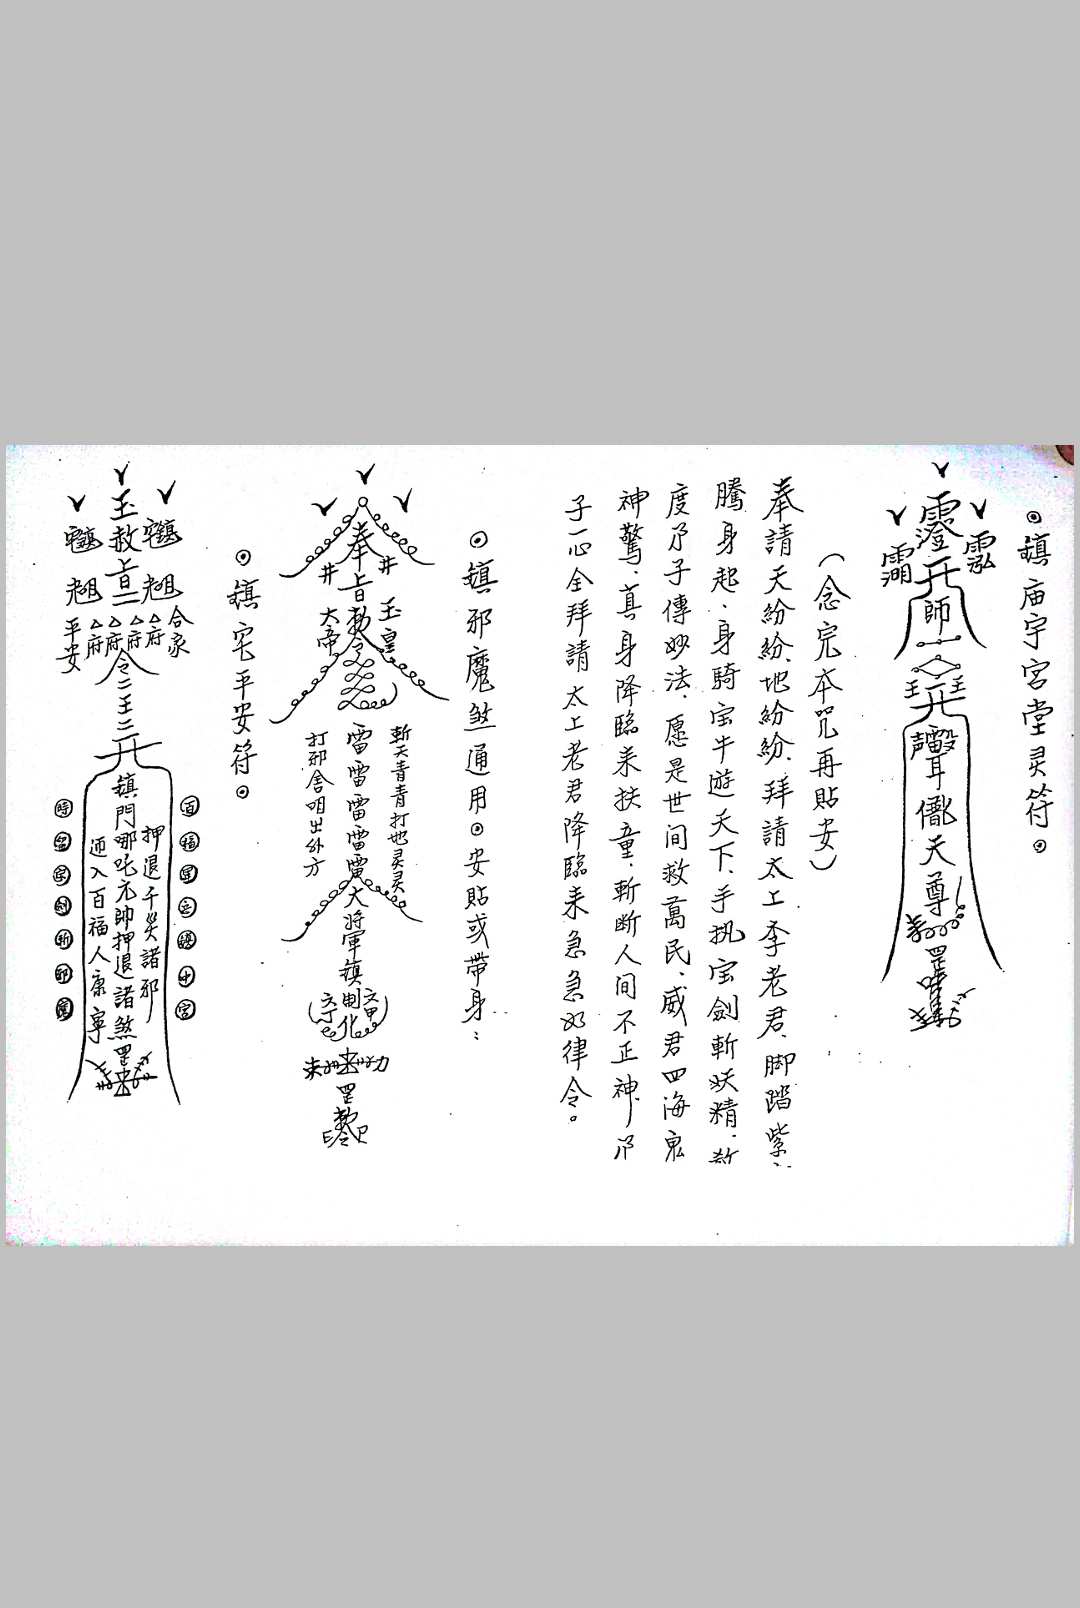 ⊙鎮庙宇宮堂灵符⊙
師
天尊
罡
(念完本咒再貼安)
奉請天紛紛、地紛紛、拜請太上李老君、脚踏紫
騰身起、身騎宝牛遊天下、手执宝劍斬妖精、
度子傳妙法、愿是世间救萬民、威君四海鬼
神驚、真身降臨来扶童、斬断人间不正神、
子一心全拜請太上老君降臨来急急如律令。
⊙鎮邪魔煞通用⊙安貼或帶身:
奉旨勅令
井 井
玉皇
大帝
斬天青青打地灵灵
雷雷雷雷雷大將軍鎮制化
打邪舍咀出外方
罡
⊙鎮宅平安符⊙
玉敕旨
合家
△府 △府 △府 △府
平安
令二王三
押退千災諸邪
鎮門哪吒元帥押退諸煞罡
迊入百福人康寧